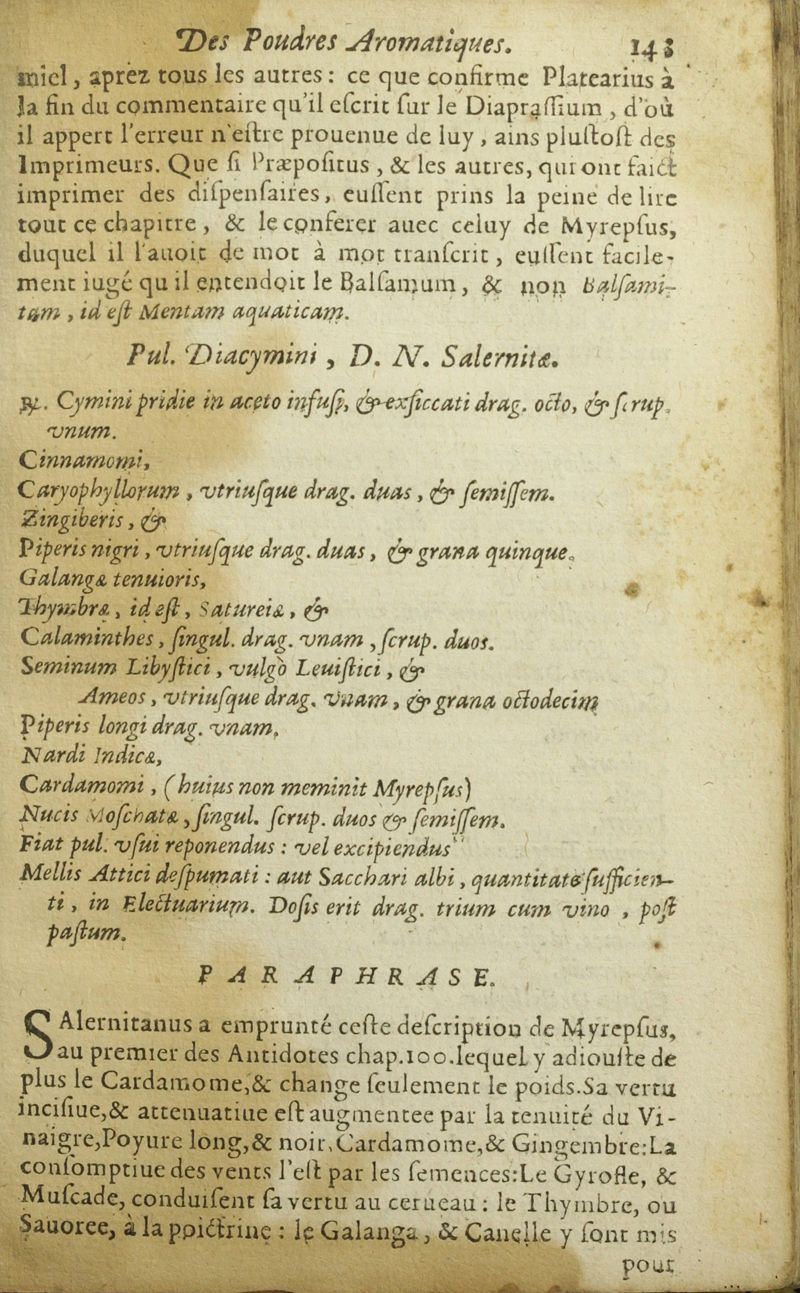 Des Poudres Aromatiques. 143
miel, aprez tous les autres : ce que confirme Platearius à
la fin du commentaire qu'il eſcrit ſur le Diapraſſium, d'où
il appert l'erreur n'eſtre prouenue de luy, ains pluſtoſt des
Imprimeurs. Que ſi Præpoſitus, & les autres, qui ont faict
imprimer des diſpenſaires, euſſent prins la peine de lire
tout ce chapitre, & le conferer auec celuy de Myrepſus,
duquel il l'auoit de mot à mot tranſcrit, euſſent facile-
ment iugé qu il entendoit le Balſamum, & non Balſami-
tam, id eſt Mentam aquaticam.
Pul. Diacymini, D. N. Salernitæ.
℞. Cymini pridie in aceto infuſi, & exſiccati drag. octo, & ſcrup.
vnum.
Cinnamomi,
Caryophyllorum, vtriuſque drag. duas, & ſemiſſem.
Zingiberis, &
Piperis nigri, vtriuſque drag. duas, & grana quinque.
Galangæ tenuioris,
Thymbræ, id eſt, Satureiæ, &
Calaminthes, ſingul. drag. vnam, ſcrup. duos.
Seminum Libyſtici, vulgò Leuiſtici, &
Ameos, vtriuſque drag. vnam, & grana octodecim
Piperis longi drag. vnam,
Nardi Indicæ,
Cardamomi, (huius non meminit Myrepſus)
Nucis Moſchatæ, ſingul. ſcrup. duos & ſemiſſem.
Fiat pul. vſui reponendus : vel excipiendus
Mellis Attici deſpumati : aut Sacchari albi, quantitate ſufficien-
ti, in Electuarium. Doſis erit drag. trium cum vino, poſt
paſtum.
PARAPHRASE.
SAlernitanus a emprunté ceſte deſcription de Myrepſus,
au premier des Antidotes chap.100.lequel y adiouſte de
plus le Cardamome,& change ſeulement le poids.Sa vertu
inciſiue,& attenuatiue eſt augmentee par la tenuité du Vi-
naigre,Poyure long,& noir,Cardamome,& Gingembre:La
conſomptiue des vents l'eſt par les ſemences:Le Gyrofle, &
Muſcade, conduiſent ſa vertu au cerueau : le Thymbre, ou
Sauoree, à la poictrine : le Galanga, & Canelle y ſont mis
pour